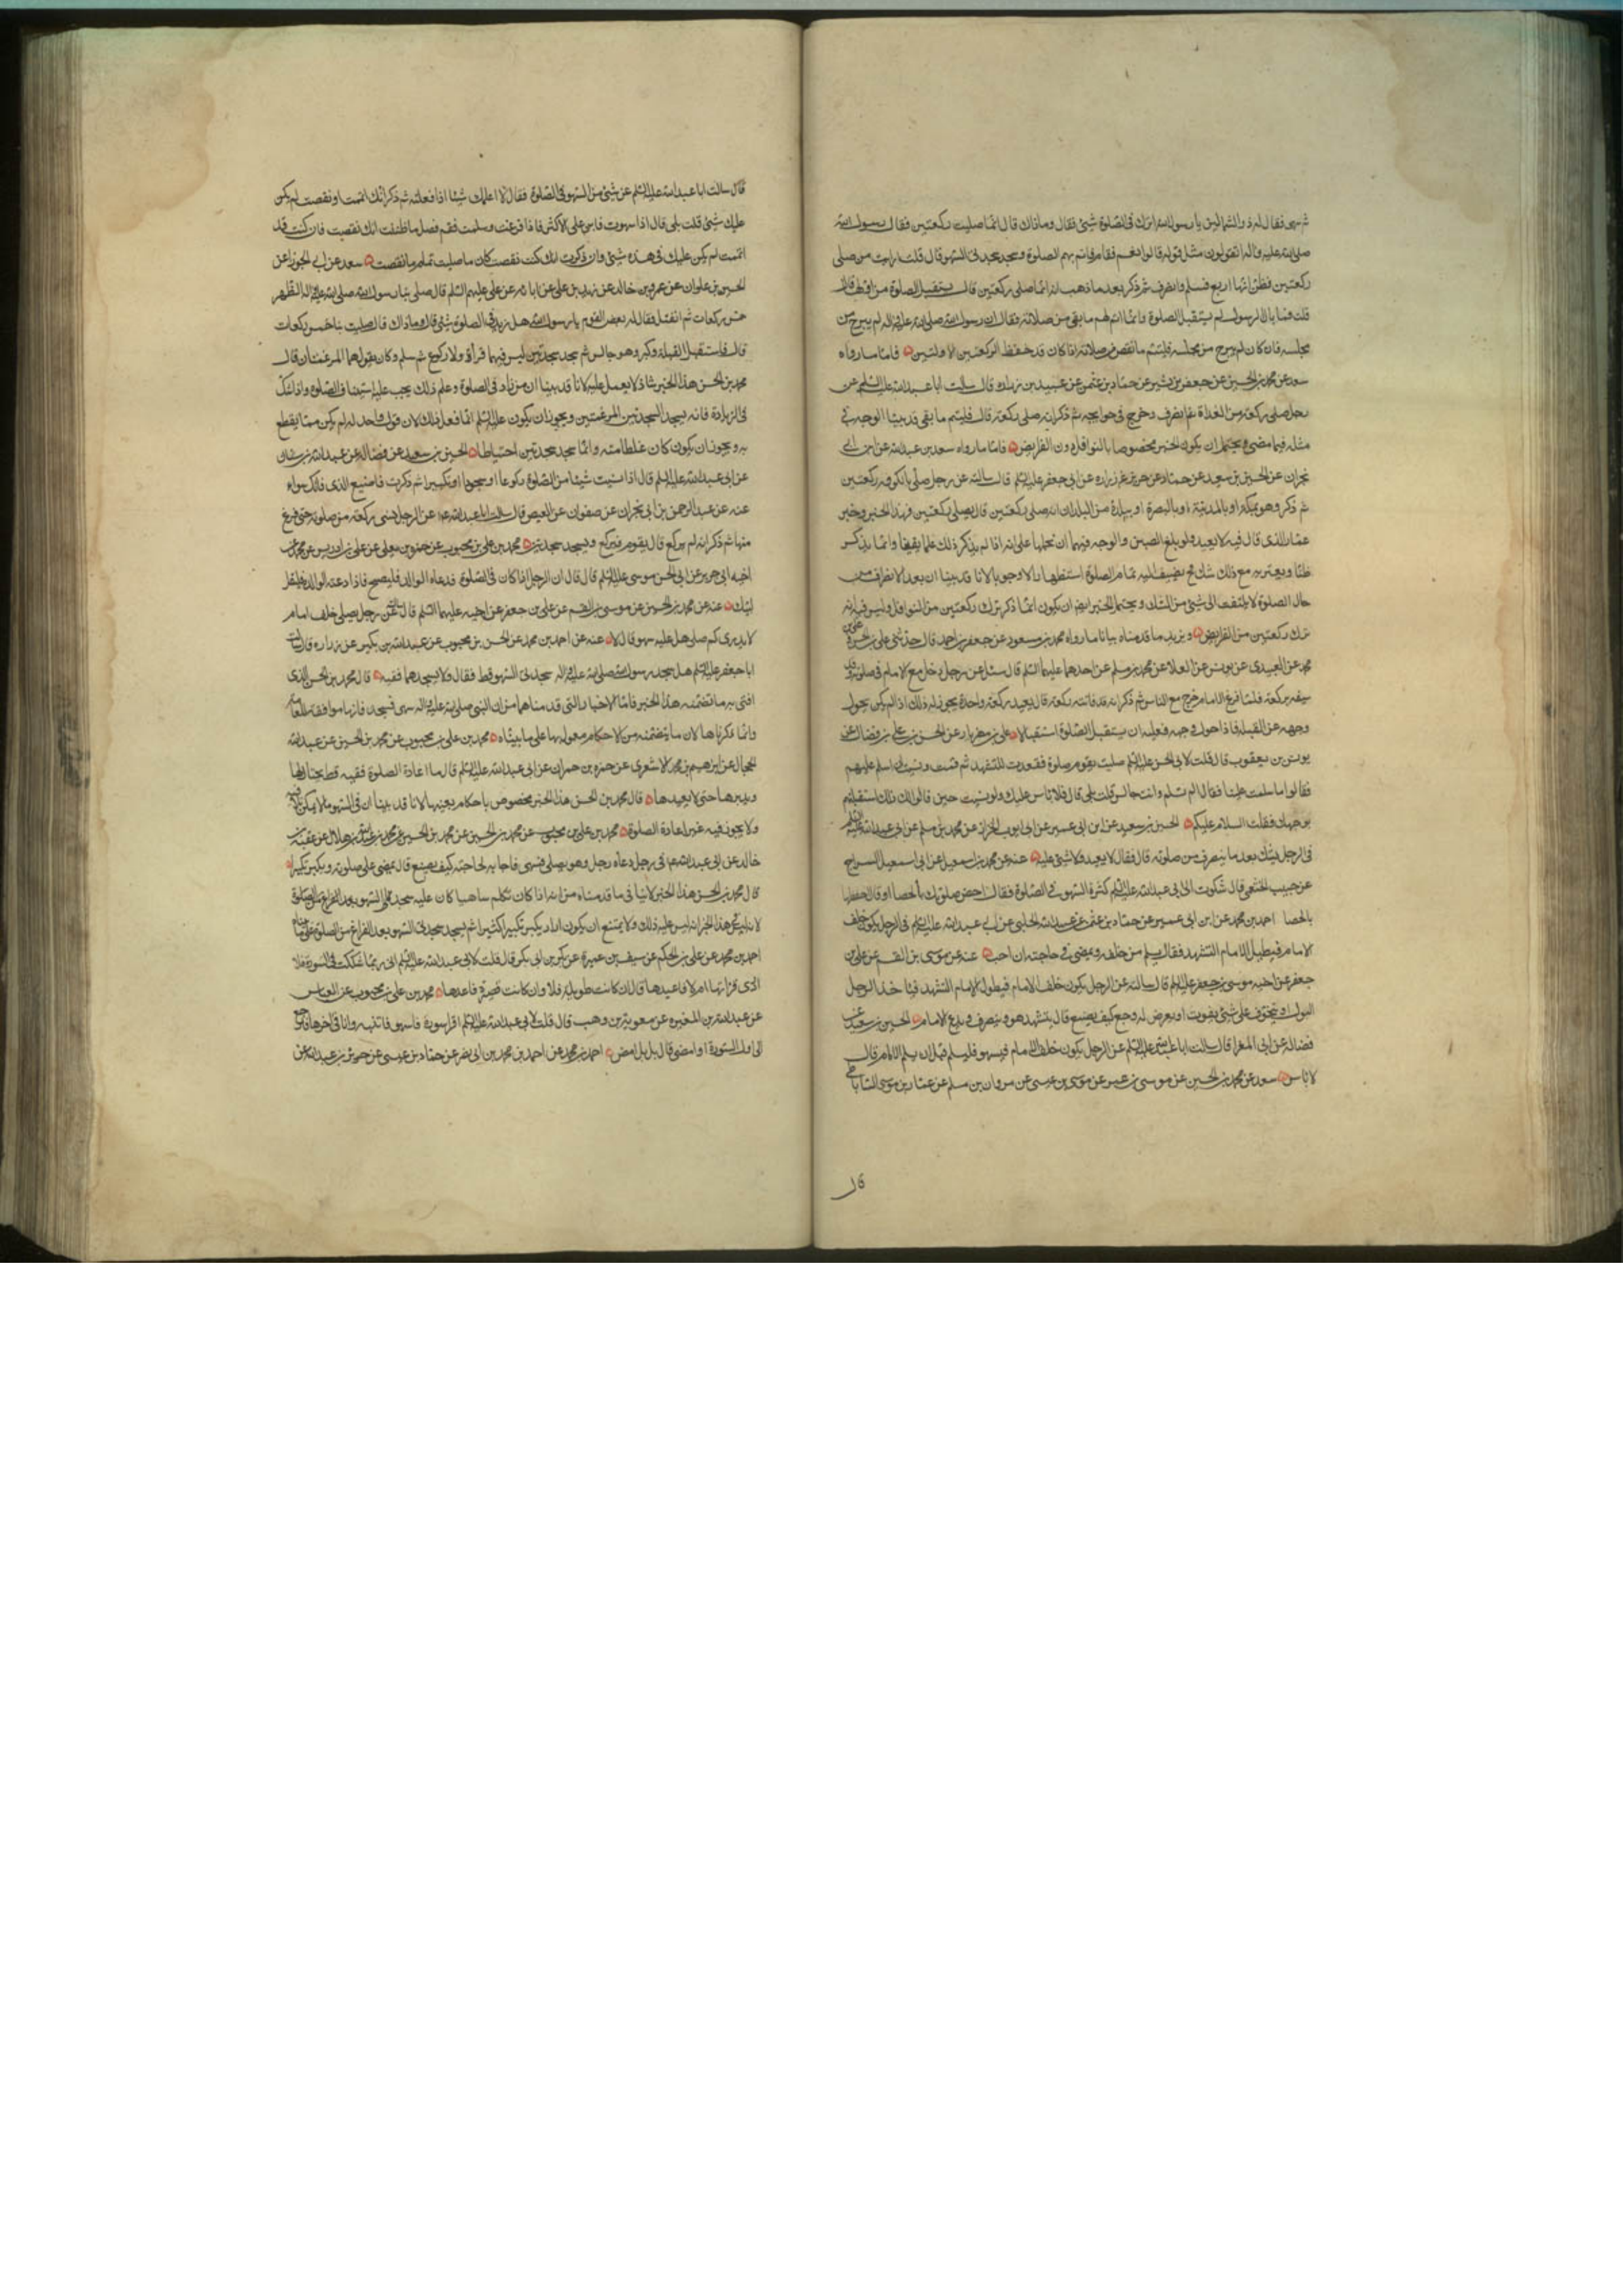 ثم سهى فقال له ذو الشمالين يا رسول الله انزل في الصلوة شئ فقال وما ذاك قال انما صليت ركعتين فقال رسول الله
صلى الله عليه وآله اتقولون مثل قوله قالوا نعم فقام فاتم بهم الصلوة وسجد سجدتى السهو قال قلت ارايت من صلى
ركعتين فظن انها اربع فسلم وانصرف ثم ذكر بعد ما ذهب انه انما صلى ركعتين قال يستقبل الصلوة من اولها قال
قلت فما بال الرسول لم يستقبل الصلوة وانما اتم لهم ما بقى من صلاته فقال ان رسول الله صلى الله عليه وآله لم يبرح من
مجلسه فان كان لم يبرح من مجلسه فليتم ما نقص من صلاته اذا كان قد حفظ الركعتين الاولتين فاما ما رواه
سعد عن محمد بن الحسين عن جعفر بن بشير عن حماد بن عثمن عن عبيد بن زرارة قال سالت ابا عبد الله عليه السلم عن
رجل صلى ركعة من الغداة ثم انصرف وخرج في حوايجه ثم ذكر انه صلى ركعة قال فليتم ما بقى قد بينا الوجه في
مثله فيما مضى ويحتمل ان يكون الخبر مخصوصا بالنوافل دون الفرايض فاما ما رواه سعد بن عبد الله عن ابن ابى
نجران عن الحسين بن سعيد عن حماد عن حريز عن زرارة عن ابى جعفر عليه السلم قال سالته عن رجل صلى بالكوفه ركعتين
ثم ذكر وهو بمكة او بالمدينة او بالبصرة او ببلدة من البلدان انه صلى ركعتين قال يصلى ركعتين فهذا الخبر وخبر
عمار الذى قال فيه لا يعيد ولو بلغ الصين والوجه فيهما ان نحملها على انه اذا لم يذكر ذلك علما يقينا وانما يذكر
ظنا ويعتريه مع ذلك شك فح يضيف اليه تمام الصلوة استظهارا لا وجوبا لانا قد بينا ان بعد الانصراف من
حال الصلوة لا يلتفت الى شئ من الشك ويحتمل الخبر ايضا ان يكون انما ذكر ترك ركعتين من النوافل وليس فيه انه
ترك ركعتين من الفرايض ويزيد ما قدمناه بيانا ما رواه محمد بن مسعود عن جعفر بن احمد قال حدثنى على بن الحسن وعلى بن
محمد عن العبيدى عن يونس عن العلا عن محمد بن مسلم عن احدهما عليهما السلم قال سئل عن رجل دخل مع الامام في صلوته وقد
سبقه بركعة فلما فرغ الامام خرج مع الناس ثم ذكر انه قد فاتته ركعة قال يعيد ركعة واحدة يجوز له ذلك اذا لم يكن يحول
وجهه عن القبلة فاذا حول وجهه فعليه ان يستقبل الصلوة استقبالا على بن مهزيار عن الحسن بن على بن فضال عن
يونس بن يعقوب قال قلت لابى الحسن عليه السلم صليت بقوم صلوة فقعدت للتشهد ثم قمت ونسيت ان اسلم عليهم
فقالوا ما سلمت علينا فقال الم تسلم وانت جالس قلت بلى قال فلا باس عليك ولو نسيت حين قالوا لك ذلك استقبلتهم
بوجهك فقلت السلام عليكم الحسين بن سعيد عن ابن ابى عمير عن ابى ايوب الخزاز عن محمد بن مسلم عن ابى عبد الله عليه السلم
في الرجل يشك بعد ما ينصرف من صلوته قال فقال لا يعيد ولا شئ عليه عنه عن محمد بن اسمعيل عن ابى اسمعيل السراج
عن حبيب الخثعمى قال شكوت الى ابى عبد الله عليه السلم كثرة السهو في الصلوة فقال احص صلوتك بالحصا او قال احفظها
بالحصا احمد بن محمد عن ابن ابى عمير عن حماد بن عثمن عن عبيد الله الحلبى عن ابى عبد الله عليه السلم في الرجل يكون خلف
الامام فيطيل الامام التشهد فقال يسلم من خلفه ويمضى في حاجته ان احب عنه عن موسى بن القسم عن على بن
جعفر عن اخيه موسى بن جعفر عليه السلم قال سالته عن الرجل يكون خلف الامام فيطول الامام التشهد فياخذ الرجل
البول او يتخوف على شئ يفوت او يعرض له وجع كيف يصنع قال يتشهد هو وينصرف ويدع الامام الحسين بن سعيد عن
فضالة عن ابى المغرا قال سالت ابا عبد الله عليه السلم عن الرجل يكون خلف الامام فيسهو فليسلم قبل ان يسلم الامام قال
لا باس سعد عن محمد بن الحسين عن موسى بن عمر عن موسى بن عيسى عن مروان بن مسلم عن عمار بن موسى الساباطى
قال
قال سالت ابا عبد الله عليه السلم عن شئ من السهو في الصلوة فقال الا اعلمك شيئا اذا فعلته ثم ذكرت انك اتممت او نقصت لم يكن
عليك شئ قلت بلى قال اذا سهوت فابن على الاكثر فاذا فرغت وسلمت فقم فصل ما ظننت انك نقصت فان كنت قد
اتممت لم يكن عليك في هذه شئ وان ذكرت انك كنت نقصت كان ما صليت تمام ما نقصت سعد عن ابى الجوزا عن
الحسين بن علوان عن عمرو بن خالد عن زيد بن على عن ابائه عن على عليهم السلم قال صلى بنا رسول الله صلى الله عليه وآله الظهر
خمس ركعات ثم انفتل فقال له بعض القوم يا رسول الله هل زيد في الصلوة شئ قال وما ذاك قال صليت بنا خمس ركعات
قال فاستقبل القبلة وكبر وهو جالس ثم سجد سجدتين ليس فيهما قراءة ولا ركوع ثم سلم وكان يقول هما المرغمتان قال
محمد بن الحسن هذا الخبر شاذ لا يعمل عليه لانا قد بينا ان من زاد في الصلوة وعلم ذلك يجب عليه استيناف الصلوة واذا شك
في الزيادة فانه يسجد السجدتين المرغمتين ويجوز ان يكون عليه السلم انما فعل ذلك لان قول واحد له لم يكن مما يقطع
به ويجوز ان يكون كان غلطا منه وانما سجد سجدتين احتياطا الحسين بن سعيد عن فضالة عن عبد الله بن سنان
عن ابى عبد الله عليه السلم قال اذا نسيت شيئا من الصلوة ركوعا او سجودا او تكبيرا ثم ذكرت فاصنع الذى فاتك سواء
عنه عن عبد الرحمن بن ابى نجران عن صفوان عن العيص قال سالت ابا عبد الله ع عن الرجل ينسى ركعة من صلوته حتى فرغ
منها ثم ذكر انه لم يركع قال يقوم فيركع ويسجد سجدتين محمد بن على بن محبوب عن حمزة بن يعلى عن على بن ادريس عن محمد عن
اخيه ابى جرير عن ابى الحسن موسى عليه السلم قال قال ان الرجل اذا كان في الصلوة فدعاه الوالد فليسبح فاذا دعته الوالدة فليقل
لبيك عنه عن محمد بن الحسين عن موسى بن القسم عن على بن جعفر عن اخيه عليهما السلم قال سالته عن رجل يصلى خلف امام
لا يدرى كم صلى هل عليه سهو قال لا عنه عن احمد بن محمد عن الحسن بن محبوب عن عبد الله بن بكير عن زرارة قال سالت
ابا جعفر عليه السلم هل سجد رسول الله صلى الله عليه وآله سجدتى السهو قط فقال ولا يسجدهما فقيه قال محمد بن الحسن الذى
افتى به ما تضمنه هذا الخبر فاما الاخبار التى قدمناها من ان النبى صلى الله عليه وآله سهى فسجد فانها موافقة للعامة
وانما ذكرناها لان ما يتضمنه من الاحكام معمول بها على ما بيناه محمد بن على بن محبوب عن محمد بن الحسين عن عبد الله
الحجال عن ابرهيم بن محمد الاشعرى عن حمزة بن حمران عن ابى عبد الله عليه السلم قال ما اعادة الصلوة فقيه قط يحتال لها
ويدبرها حتى لا يعيدها قال محمد بن الحسن هذا الخبر مخصوص باحكام بعينها لانا قد بينا ان في السهو ما لا يمكن تلافيه
ولا يجوز فيه غير اعادة الصلوة محمد بن على بن محبوب عن محمد بن الحسين عن محمد بن عبد الله بن هلال عن عقبة بن
خالد عن ابى عبد الله ع في رجل دعاه رجل وهو يصلى فسهى فاجابه لحاجته كيف يصنع قال يمضى على صلوته ويكبر تكبيرا
قال محمد بن الحسن هذا الخبر لا ينافى ما قدمناه من انه اذا كان تكلم ساهيا كان عليه سجدتى السهو بعد الفراغ من الصلوة
لانه ليس في هذا الخبر انه ليس عليه ذلك ولا يمتنع ان يكون اراد يكبر تكبيرا كثيرا ثم يسجد سجدتى السهو بعد الفراغ من الصلوة على ما بيناه
احمد بن محمد عن على بن الحكم عن سيف بن عميرة عن بكر بن ابى بكر قال قلت لابى عبد الله عليه السلم انى ربما شككت في السورة فلا
ادرى قراتها ام لا فاعيدها قال ان كانت طويلة فلا وان كانت قصيرة فاعدها محمد بن على بن محبوب عن العباس
عن عبد الله بن المغيرة عن معوية بن وهب قال قلت لابى عبد الله عليه السلم اقرا سورة فاسهو فانتبه وانا في اخرها فارجع
الى اول السورة او امضى قال بل امض احمد بن محمد عن احمد بن محمد بن ابى نصر عن حماد بن عيسى عن حريز بن عبد الله عن